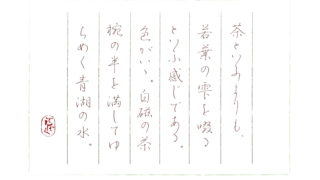 茶といふよりも、
若葉の雫を啜る
といふ感じである。
色がいゝ。白磁の茶
椀の半を満してゆ
らめく青湖の水。